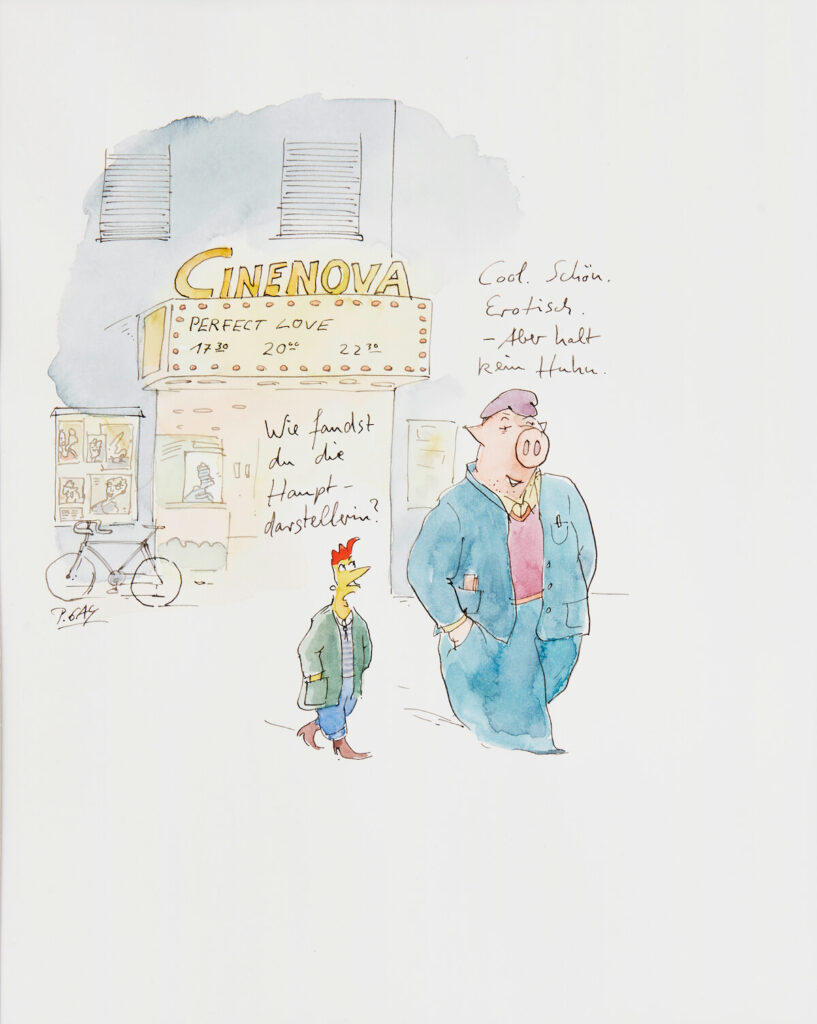 CINENOVA
PERFECT LOVE
17³⁰ 20⁰⁰ 22³⁰
Wie fandst
du die
Haupt-
darstellerin?
Cool. Schön.
Erotisch.
– Aber halt
kein Huhn.
P. GAY